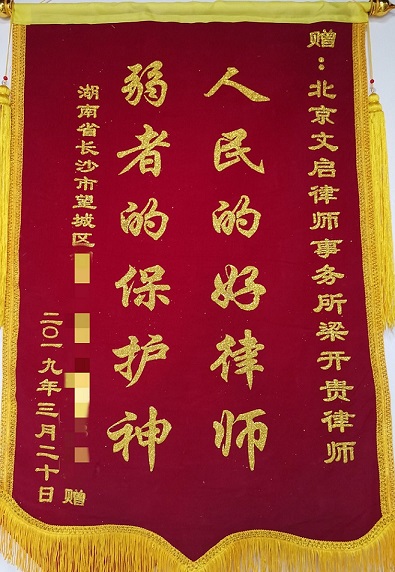 赠：北京文启律师事务所梁开贵律师
人民的好律师
弱者的保护神
湖南省长沙市望城区
赠
二〇一九年三月二十日